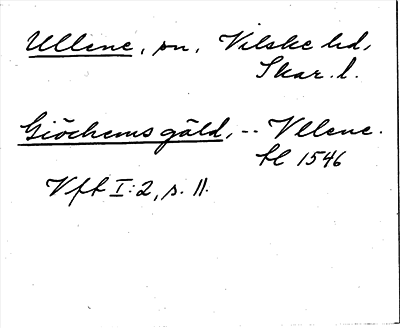 Ullene, sn, Vilske hd,
Skar. l.
Giöckems gäld, -- Vllene.
tl 1546
Vfb I:2, s. 11.